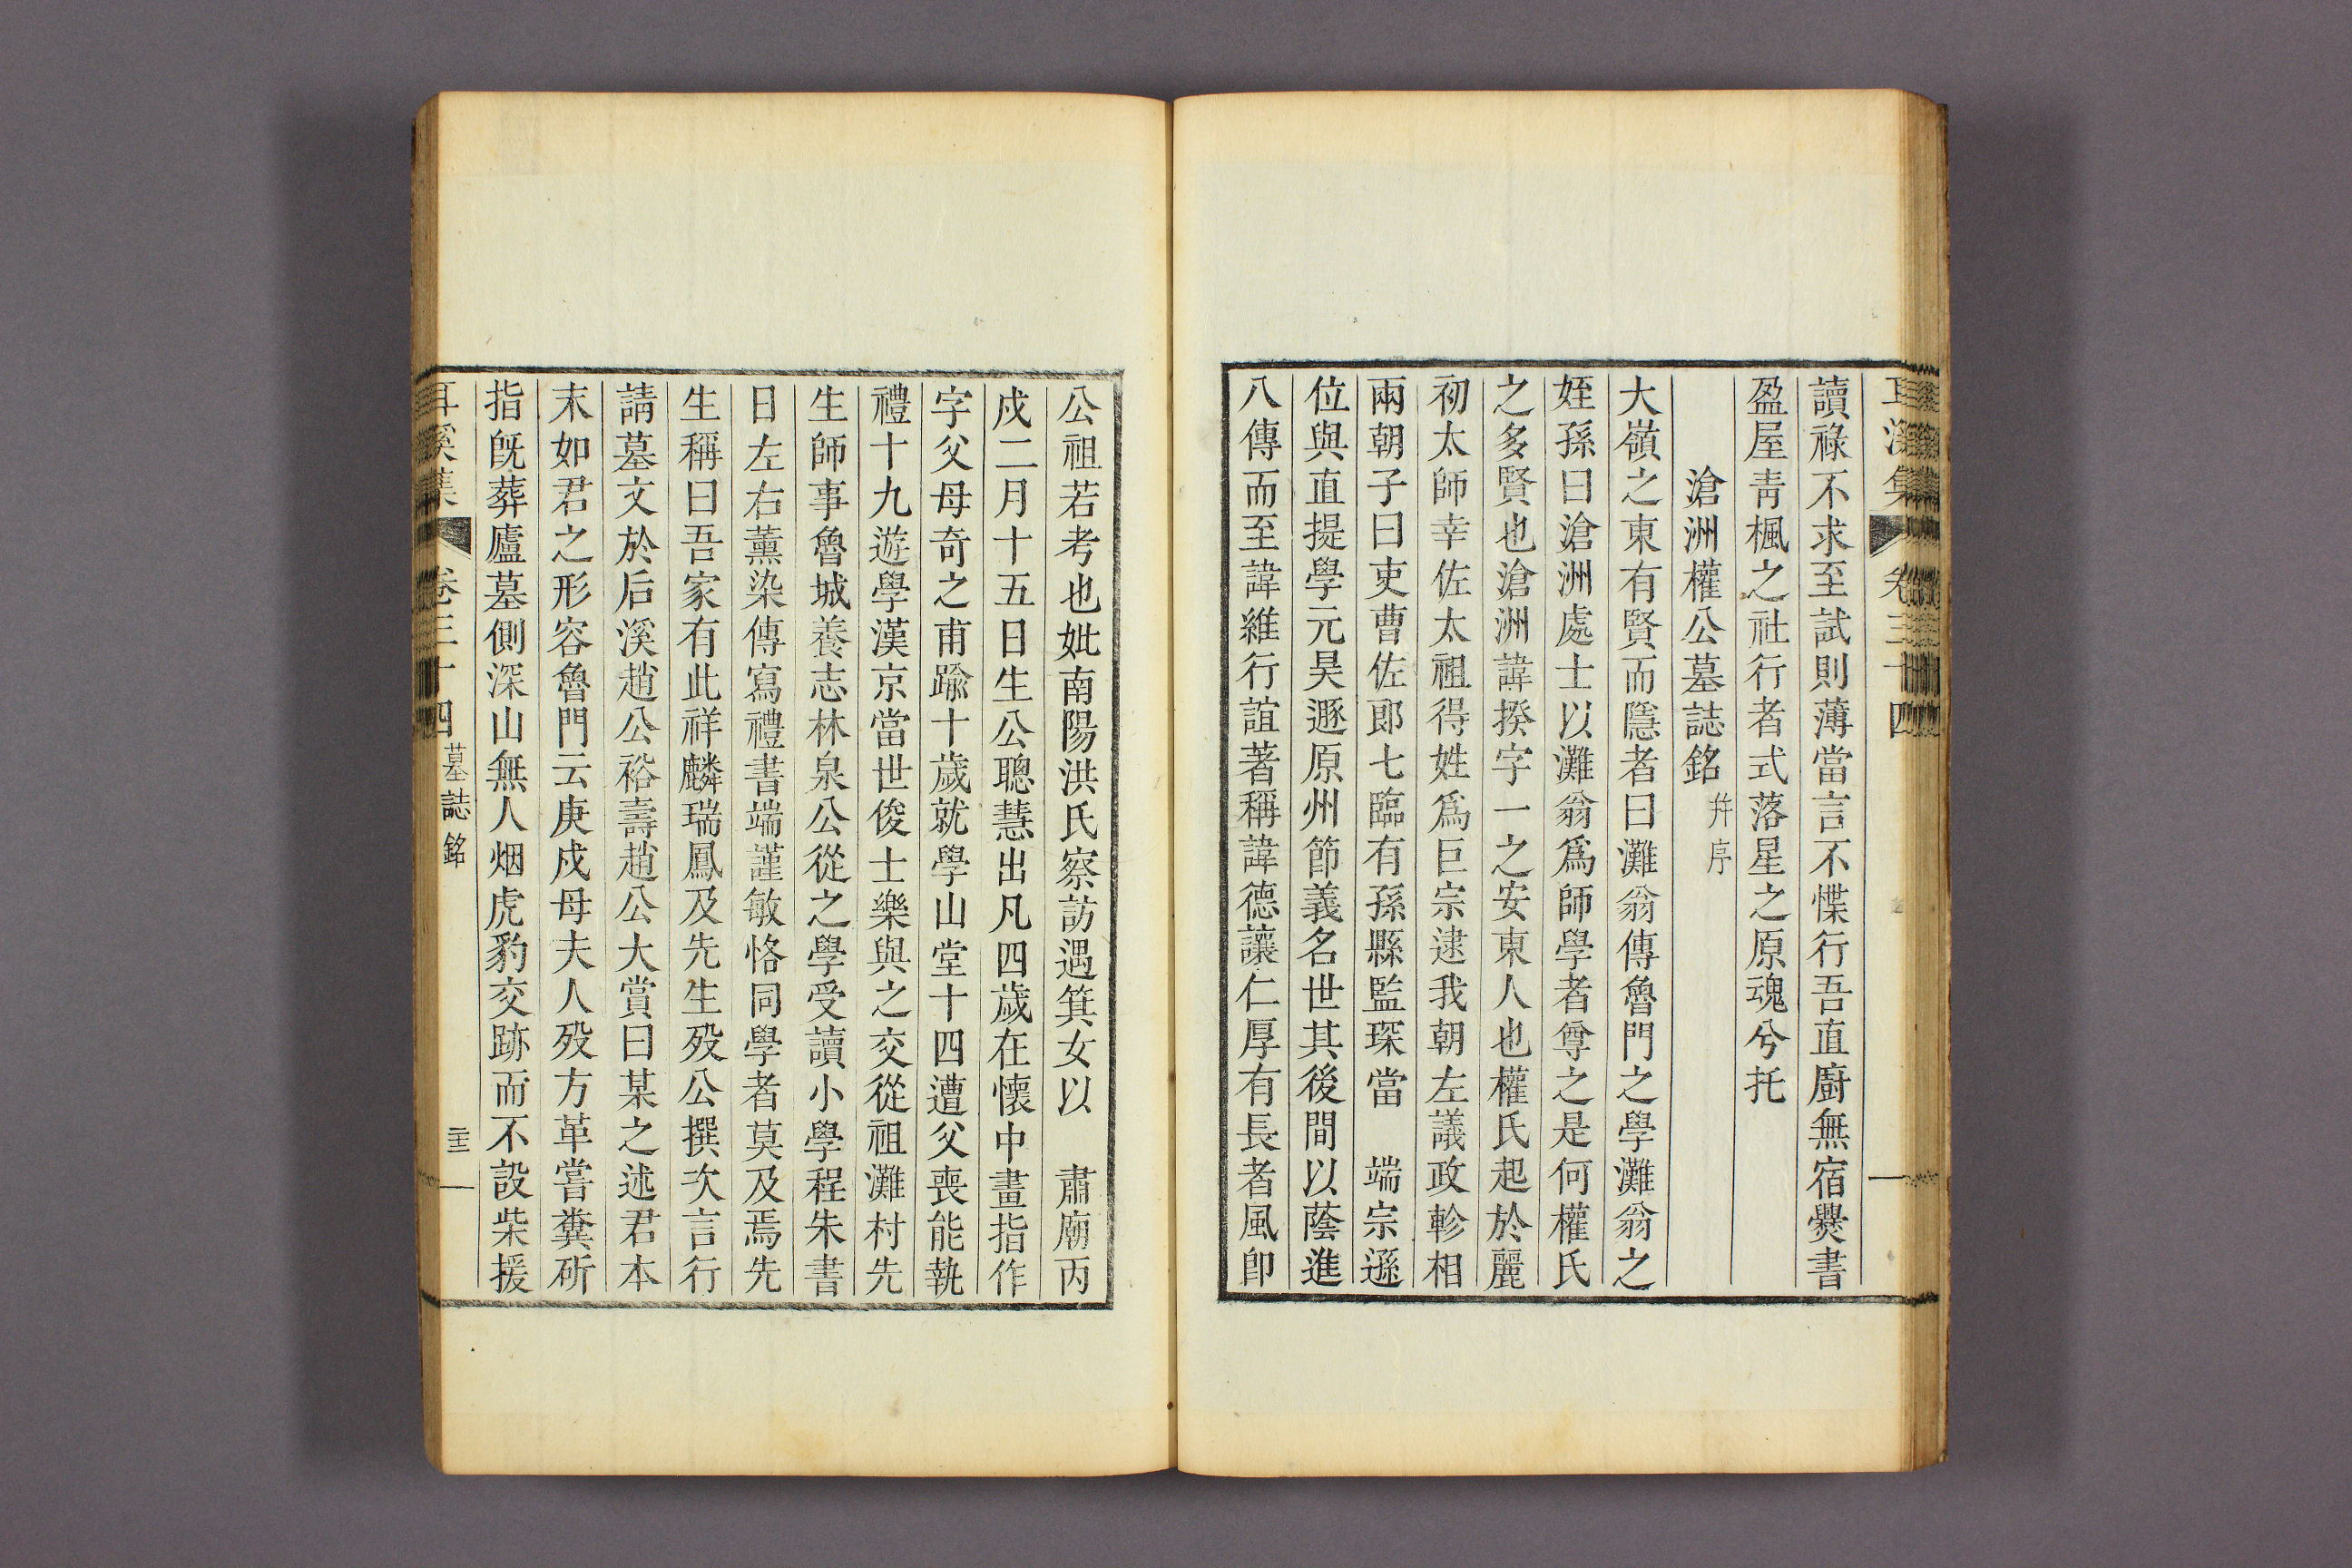 讀祿不求至試則薄當言不惵行吾直廚無宿爨書
盈屋靑楓之社行者式落星之原魂兮托
滄洲權公墓誌銘 幷序
大嶺之東有賢而隱者曰灘翁傳魯門之學灘翁之
姪孫曰滄洲處士以灘翁爲師學者尊之是何權氏
之多賢也滄洲諱揆字一之安東人也權氏起於麗
初太師幸佐太祖得姓爲巨宗逮我朝左議政軫相
兩朝子曰吏曹佐郎七臨有孫縣監琛當 端宗遜
位與直提學元昊遯原州節義名世其後間以蔭進
八傳而至諱維行誼著稱諱德讓仁厚有長者風卽
公祖若考也妣南陽洪氏察訪遇箕女以 肅廟丙
戍二月十五日生公聰慧出凡四歲在懷中畫指作
字父母奇之甫踰十歲就學山堂十四遭父喪能執
禮十九遊學漢京當世俊士樂與之交從祖灘村先
生師事魯城養志林泉公從之學受讀小學程朱書
日左右薰染傳寫禮書端謹敏恪同學者莫及焉先
生稱曰吾家有此祥麟瑞鳳及先生歿公撰次言行
請墓文於后溪趙公裕壽趙公大賞曰某之述君本
末如君之形容魯門云庚戍母夫人歿方革嘗糞斫
指旣葬廬墓側深山無人烟虎豹交跡而不設柴援
耳溪集 卷三十四 墓誌銘